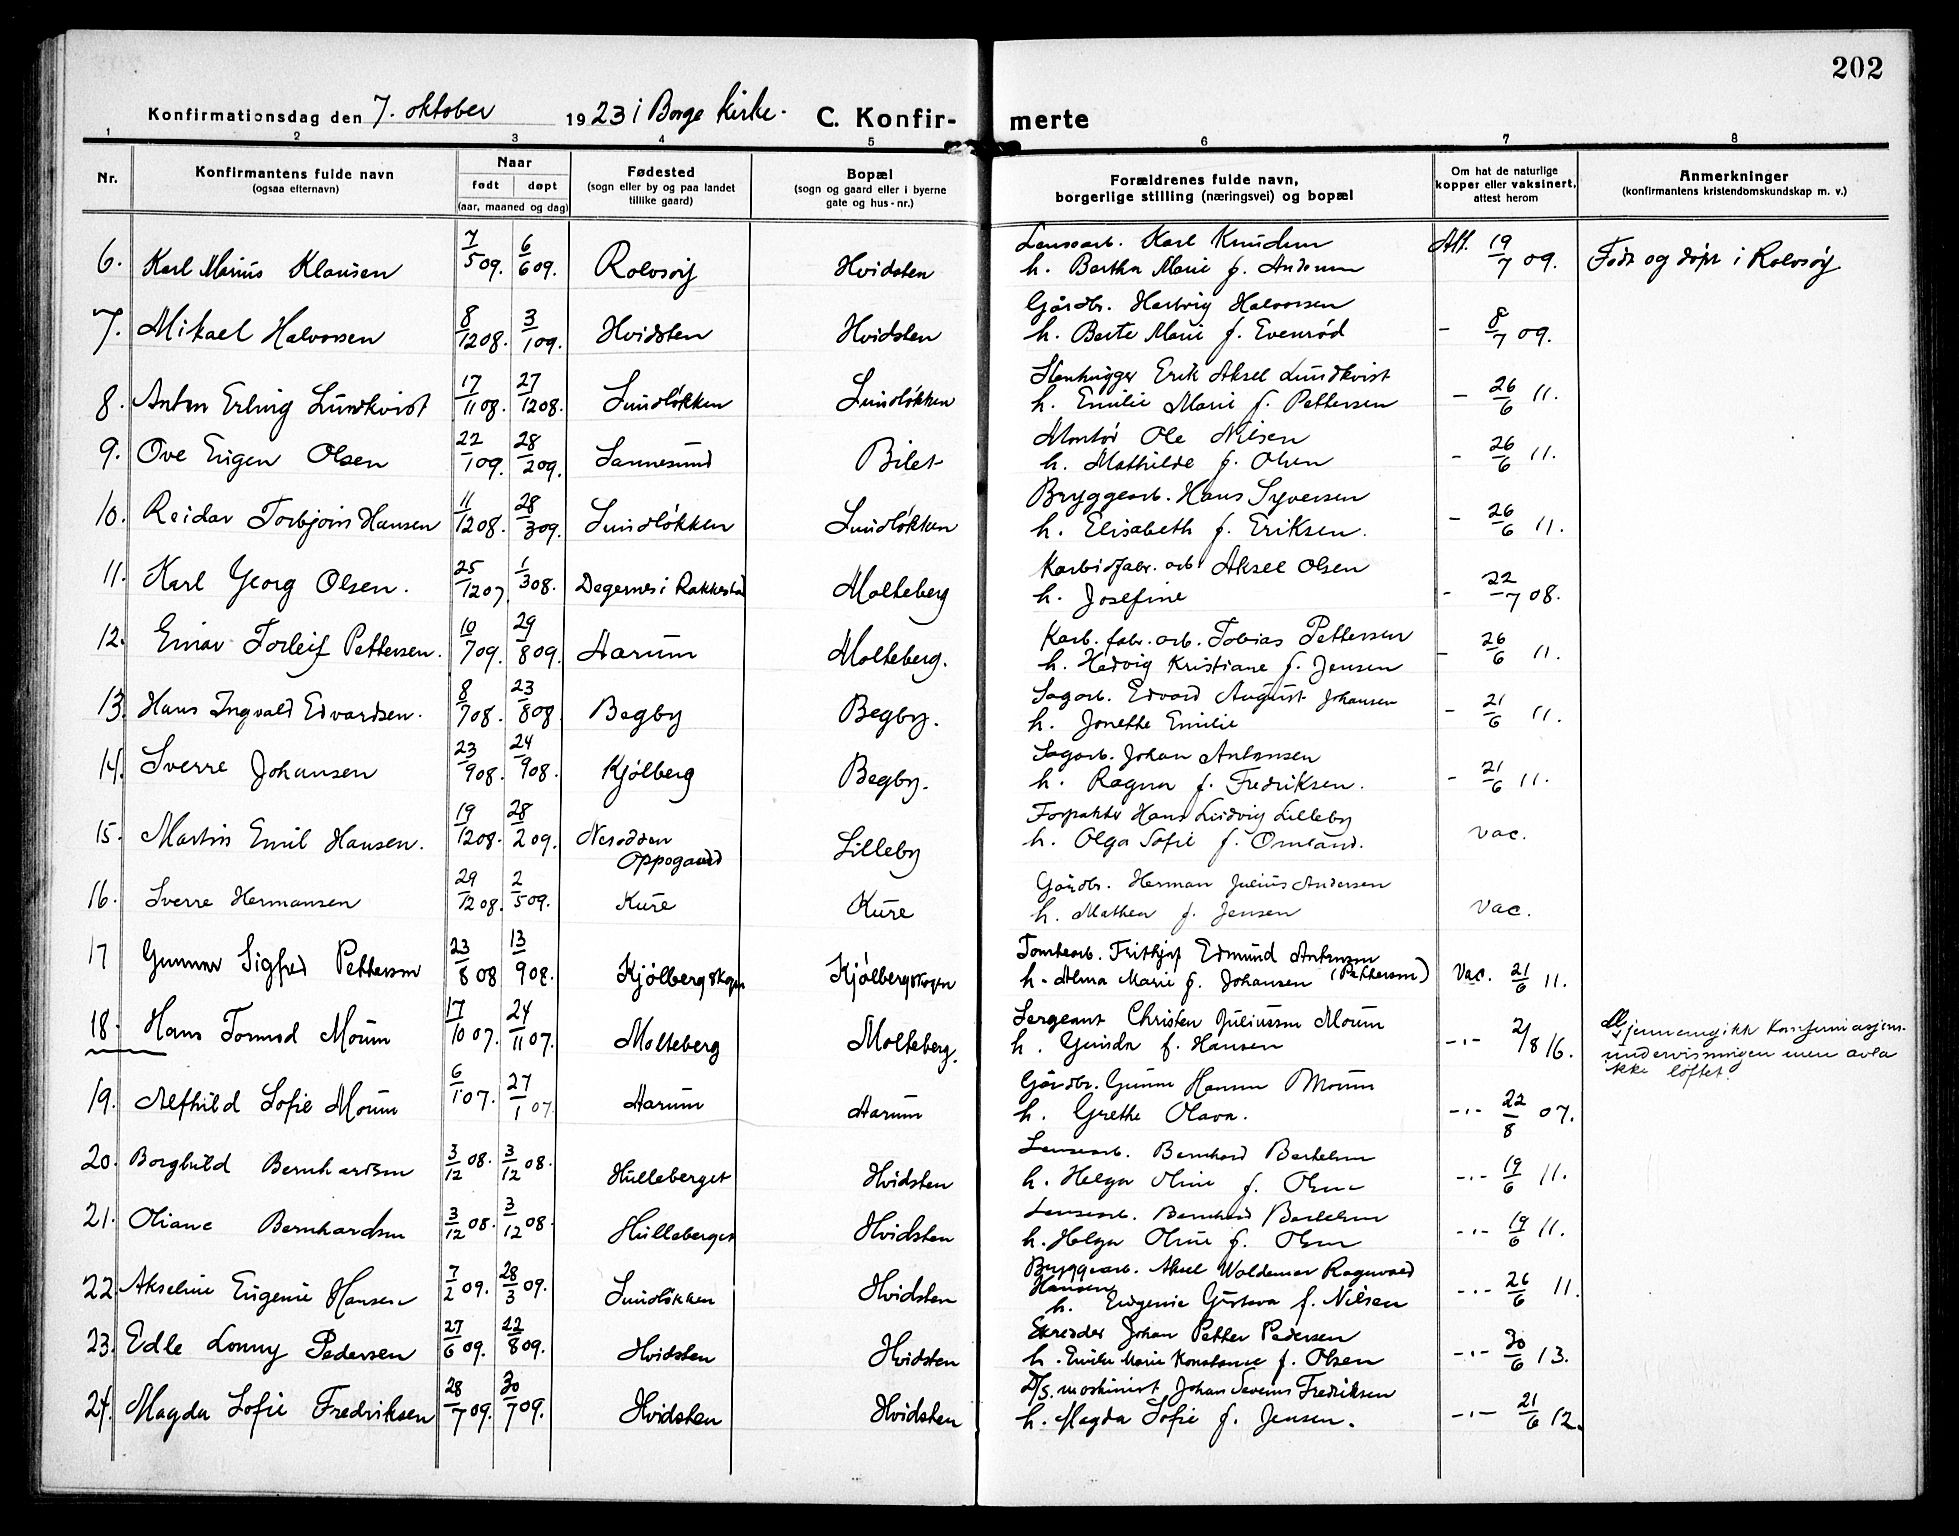 202
Konfirmationsdag den 7. oktober 1923 i Borge kirke. C. Konfirmerte
1 2 3 4 5 6 7 8
Nr.
Konfirmantens fulde navn
(ogsaa efternavn)
Naar
født døpt
(aar, maaned og dag)
Fødested
(sogn eller by og paa landet
tillike gaard)
Bopæl
(sogn og gaard eller i byerne
gate og hus-nr.)
Forældrenes fulde navn,
borgerlige stilling (næringsvei) og bopæl
Om hat de naturlige
kopper eller vaksinert,
attest herom
Anmerkninger
(konfirmantens kristendomskundskap m. v.)
6. Karl Marius Klausen 7/5 09. 6/6 09. Rolvsøy Hvidsten
Lensearb. Karl Knudsen
h. Bertha Marie f. Andersen
Att. 19/7 09. Født og døpt i Rolvsøy
7. Mikael Halvorsen 8/12 08. 3/1 09. Hvidsten Hvidsten
Gårdbr. Hartvig Halvorsen
h. Berte Marie f. Evenrød
- 8/7 09.
8. Anton Erling Lundkvist 17/11 08. 27/12 08. Lundløkken Lundløkken
Stenhugger Erik Aksel Lundkvist
h. Emilie Marie f. Pettersen
- 26/6 11.
9. Ove Eugen Olsen 22/1 09. 28/2 09. Sannesund Bilet
Montør Ole Nilsen
h. Mathilde f. Olsen
- 26/6 11.
10. Reidar Torbjørn Hansen 11/12 08. 28/3 09. Lundløkken Lundløkken
Bryggearb. Hans Syversen
h. Elisabeth f. Eriksen.
- 26/6 11.
11. Karl Georg Olsen. 25/12 07. 1/3 08. Degernes i Rakkestad Molteberg
Karbidfabr. arb. Aksel Olsen
h. Josefine
- 22/7 08.
12. Einar Torleif Pettersen. 10/7 09. 29/8 09. Aarum Molteberg.
Karb. fabr. arb. Tobias Pettersen
h. Hedvig Kristiane f. Jensen
- 26/6 11.
13. Hans Ingvald Edvardsen. 8/7 08. 23/8 08. Begby Begby.
Sagarb. Edvard August Johansen
h. Jonette Emilie
- 21/6 11.
14. Sverre Johansen 23/9 08. 24/9 08. Kjølberg Begby.
Sagarb. Johan Antonsen
h. Ragna f. Fredriksen.
- 21/6 11.
15. Martin Emil Hansen. 19/12 08. 28/2 09. Nesodden
Oppegaard Lilleby
Forpakter Hans Ludvig Lilleby
h. Olga Sofie f. Omland.
Vac.
16. Sverre Hermansen 29/12 08. 2/5 09. Kure Kure
Gårdbr. Herman Julius Andersen
h. Mathea f. Jensen
Vac.
17 Gunnar Sigfred Pettersen 23/8 08 13/9 08. Kjølbergskogen Kjølbergskogen
Tomtearb. Frithjof Edmund Antonsen
h. Alma Marie f. Johansen (Pettersen)
Vac. 21/6 11.
18. Hans Tormod Moum 17/10 07. 24/11 07. Molteberg Molteberg.
Sergeant Christen Juliussen Moum
h. Gunda f. Hansen
-"- 2/8 16.
Gjennemgikk konfirmasjons-
undervisningen men avla
ikke løftet.
19. Alfhild Sofie Moum 6/1 07. 27/1 07. Aarum Aarum
Gårdbr. Gunner Hansen Moum
h. Grethe Olava.
-"- 22/8 07.
20. Borghild Bernhardsen 3/12 08. 3/12 08. Hulleberget Hvidsten
Lensearb. Bernhard Bertelsen
h. Helga Oline f. Olsen
-"- 19/6 11.
21. Oliane Bernhardsen 3/12 08. 3/12 08. Hulleberget Hvidsten
Lensearb. Bernhard Bertelsen
h. Helga Oline f. Olsen
-"- 19/6 11.
22. Akseline Eugenie Hansen 7/2 09. 28/3 09. Lundløkken Hvidsten
Bryggearb. Aksel Waldemar Ragnvald
Hansen
h. Eugenie Gustava f. Nilsen
-"- 26/6 11.
23. Edle Lonny Pedersen 27/6 09. 22/8 09. Hvidsten Hvidsten
Skredder Johan Petter Pedersen
h. Emilie Marie Konstanse f. Olsen
-"- 30/6 13.
24. Magda Sofie Fredriksen 28/7 09. 30/7 09. Hvidsten Hvidsten
D/S. maskinist Johan Severin Fredriksen
h. Magda Sofie f. Jensen.
-"- 21/6 12.